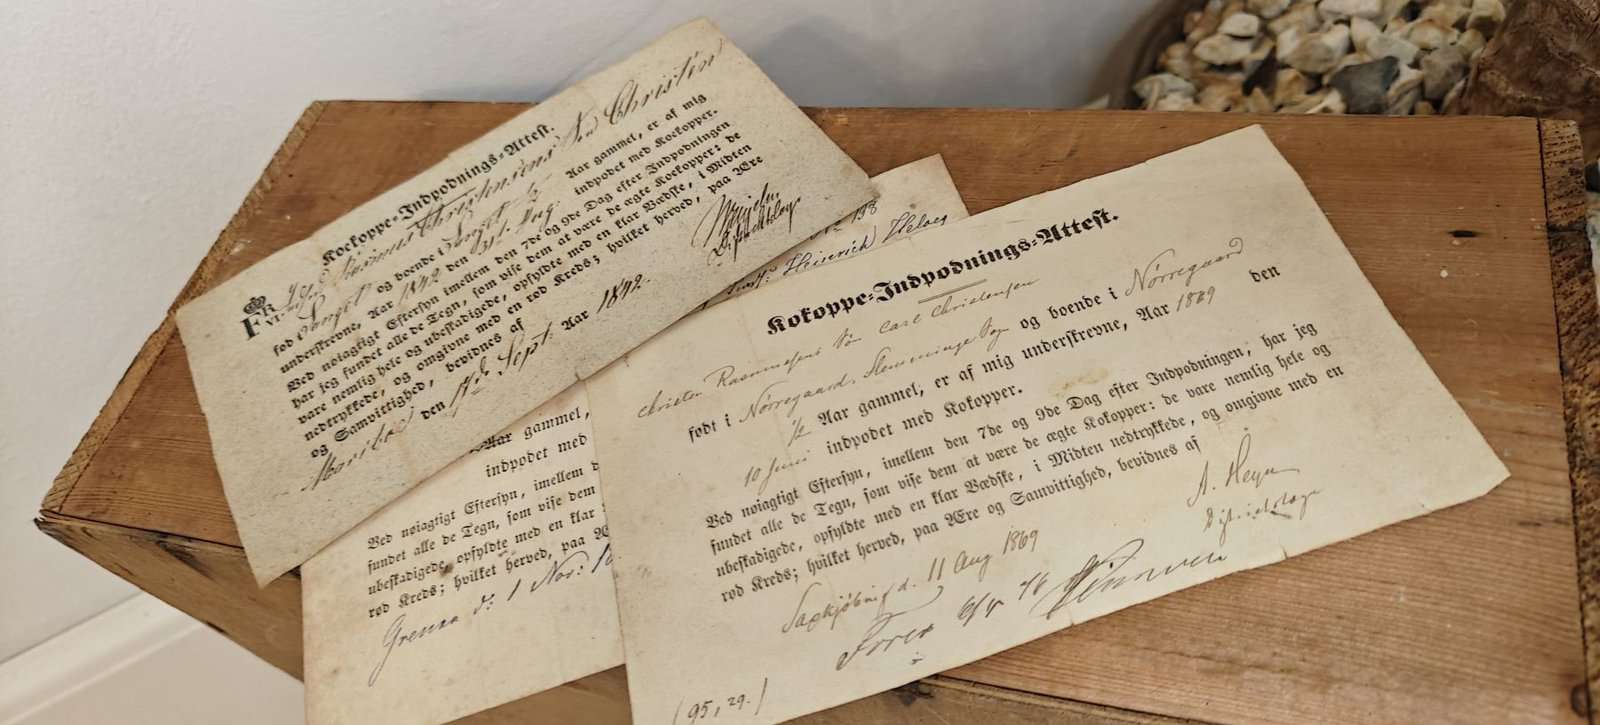 Koekoppe-Indpodnings-Attest.
F R VI. Rasmus Christensens Søn Christen
født i og boende i
Aar gammel, er af mig
underskrevne, Aar 1842 den indpodet med Koekopper.
Ved nøiagtigt Eftersyn imellem den 7de og 9de Dag efter Indpodningen
har jeg fundet alle de Tegn, som vise dem at være de ægte Koekopper: de
vare nemlig hele og ubeskadigede, opfyldte med en klar Vædske, i Midten
nedtrykkede, og omgivne med en rød Kreds; hvilket herved, paa Ære
og Samvittighed, bevidnes af
Maribo den 17d Sept. Aar 1842.
No 198
Heinrich
Aar gammel,
indpodet med
Ved nøiagtigt Eftersyn, imellem d
fundet alle de Tegn, som vise dem
ubeskadigede, opfyldte med en klar
rød Kreds; hvilket herved, paa Æ
Grenaa d: 1 Nov:
Kokoppe-Indpodnings-Attest.
Christen Rasmussens Søn Carl Christensen
født i Nørregaard, og boende i Nørregaard
½ Aar gammel, er af mig underskrevne, Aar 1869 den
10 Juni indpodet med Kokopper.
Ved nøiagtigt Eftersyn, imellem den 7de og 9de Dag efter Indpodningen, har jeg
fundet alle de Tegn, som vise dem at være de ægte Kokopper: de vare nemlig hele og
ubeskadigede, opfyldte med en klar Vædske, i Midten nedtrykkede, og omgivne med en
rød Kreds; hvilket herved, paa Ære og Samvittighed, bevidnes af
Saxkjøbing d. 11 Aug 1869
A. Heyn
Districtslæge
(95, 29.)